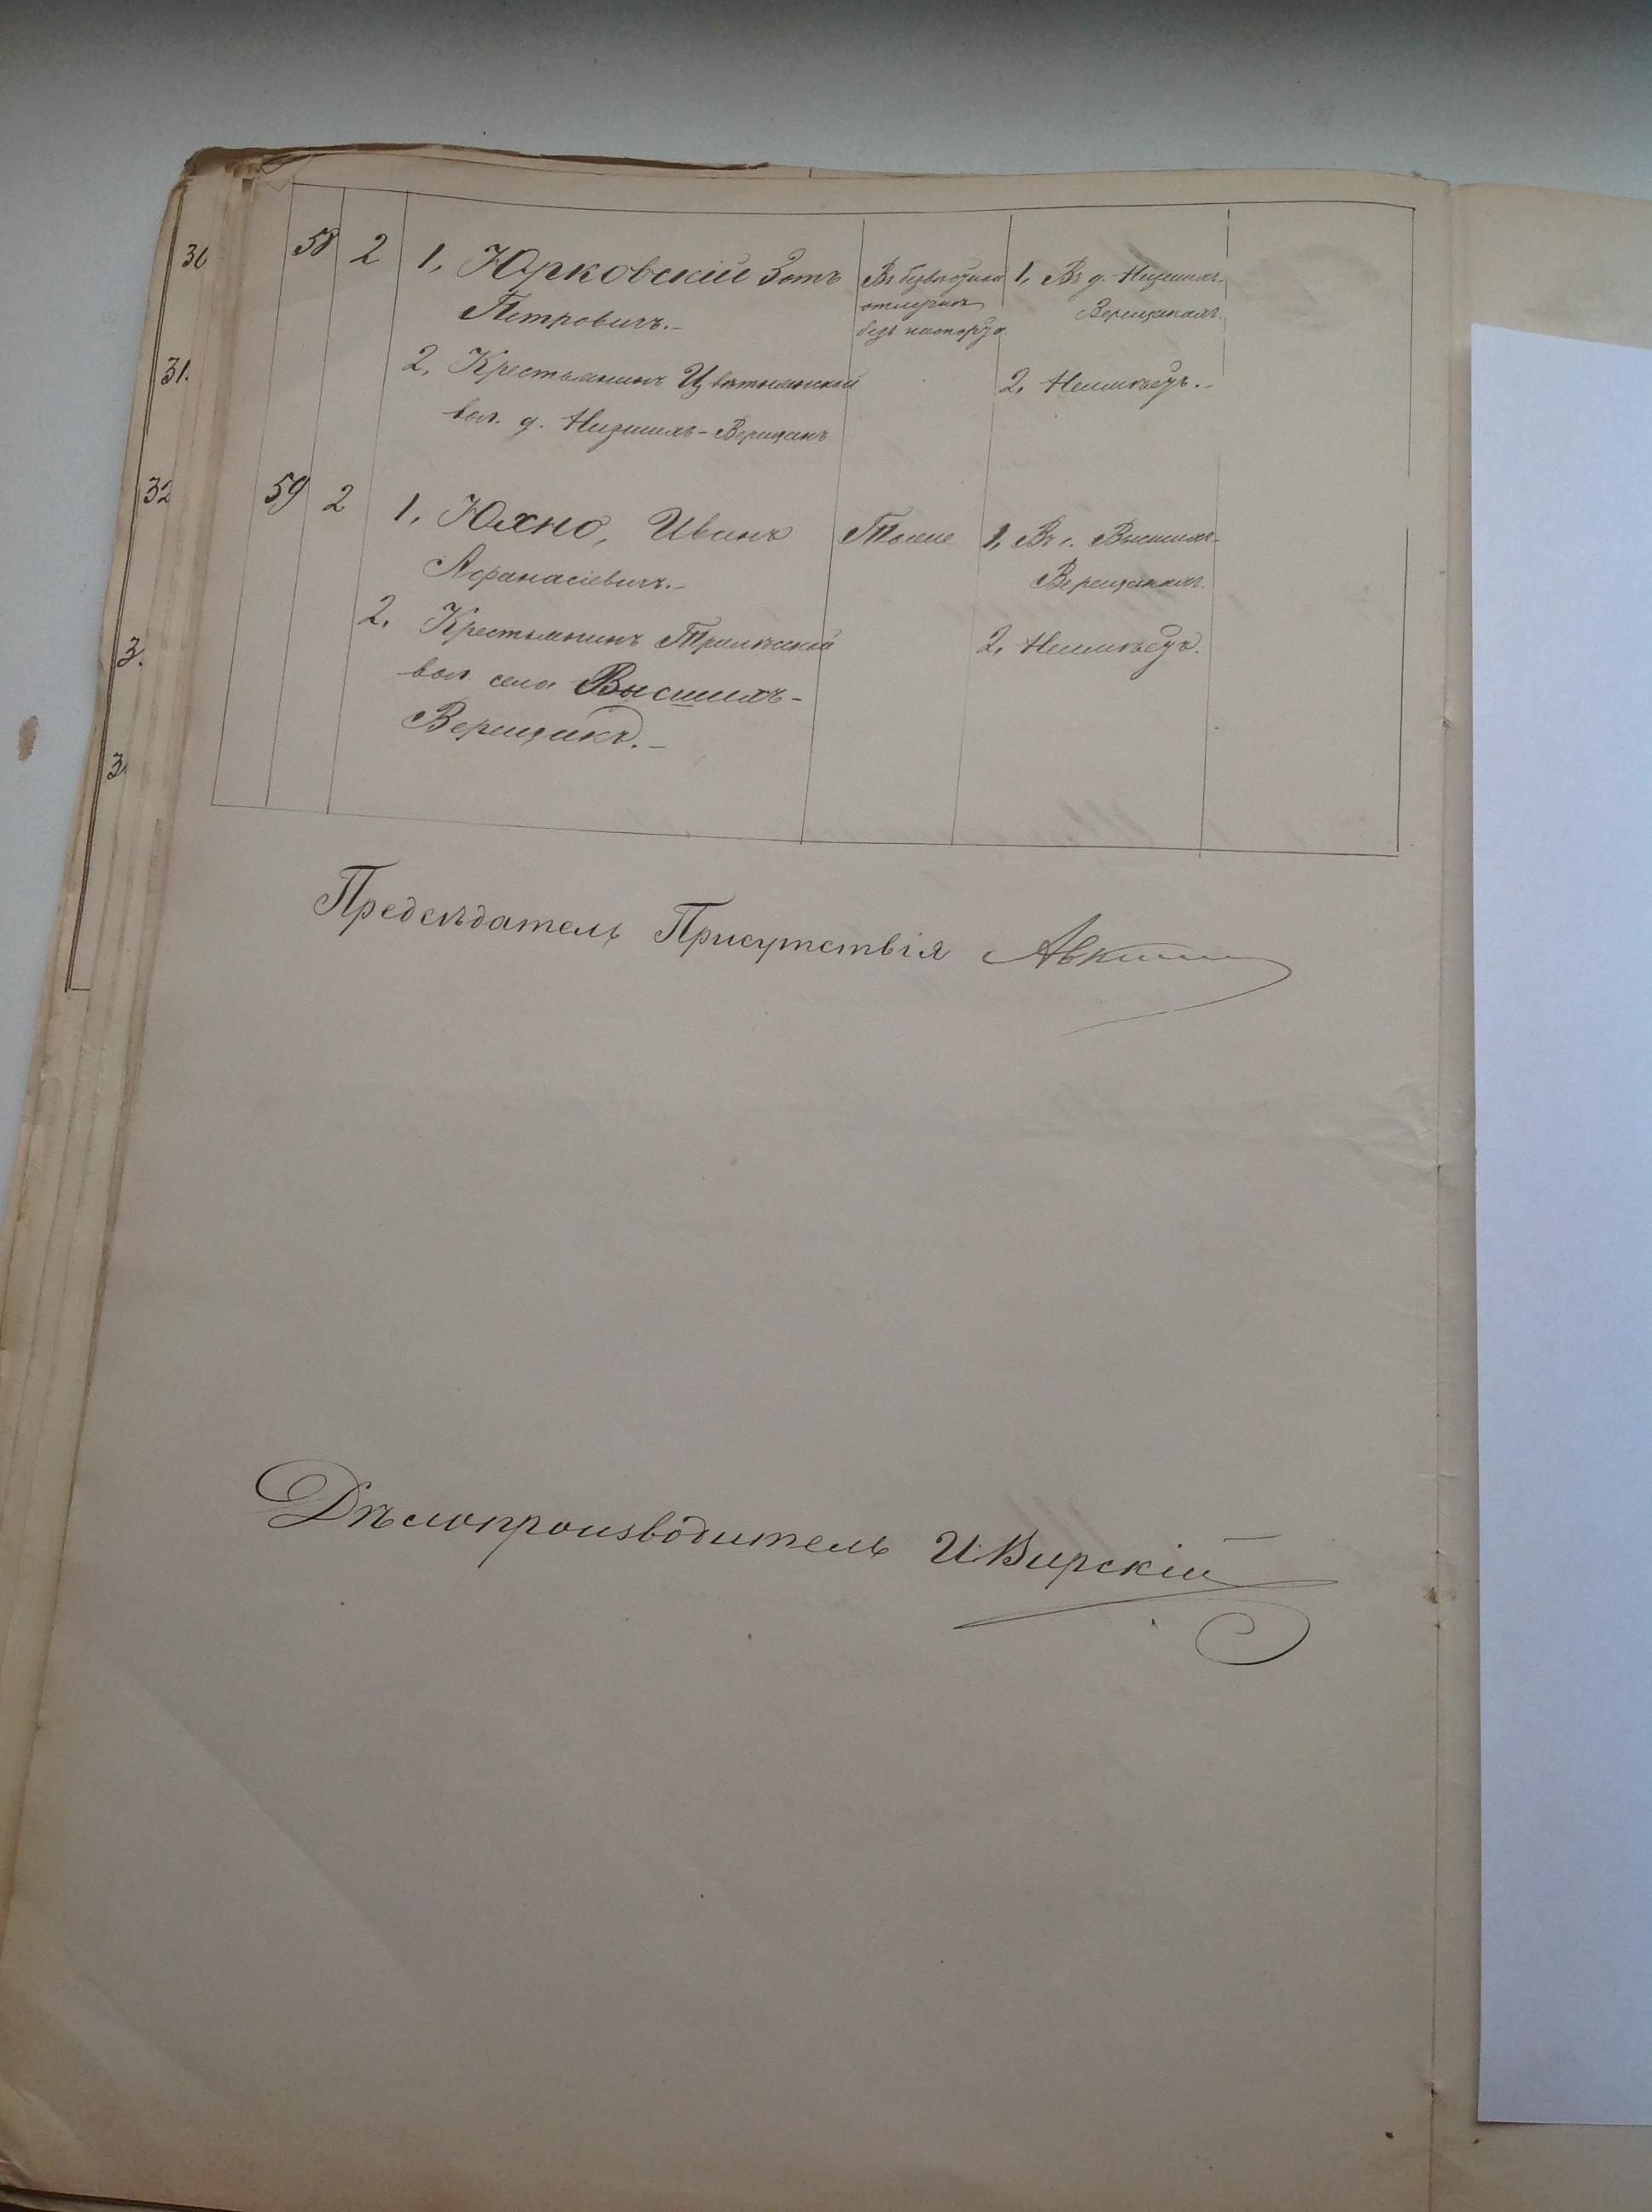 30
31.
32
3.
3
58 2 1, Юрковскій Зотъ
Петровичъ.-
2, Крестьянинъ Цвѣтнянской
вол. д. Низшихъ-Верещакъ
Въ безвѣстной
отлучкѣ
безъ паспорта.
1, Въ д. Низшихъ-
Верещакахъ.
2, Неимѣетъ.-
59 2 1, Юхно, Иванъ
Афанасіевичъ.-
2. Крестьянинъ Трилѣсской
вол села Высшихъ-
Верещакъ.-
Тоже
1, Въ с. Высшихъ-
Верещакахъ.
2, Неимѣетъ.
Предсѣдатель Присутствія
Дѣлопроизводитель И. Вирскій